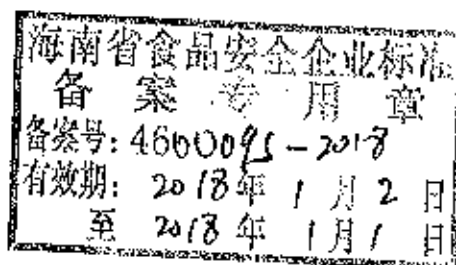 海南省食品安全企业标准
备案专用章
备案号: 460009S-2018
有效期: 2018年1月2日
至 2018年1月1日